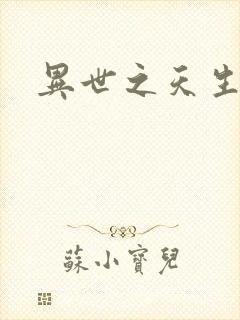 異世之天生
蘇小寶兒